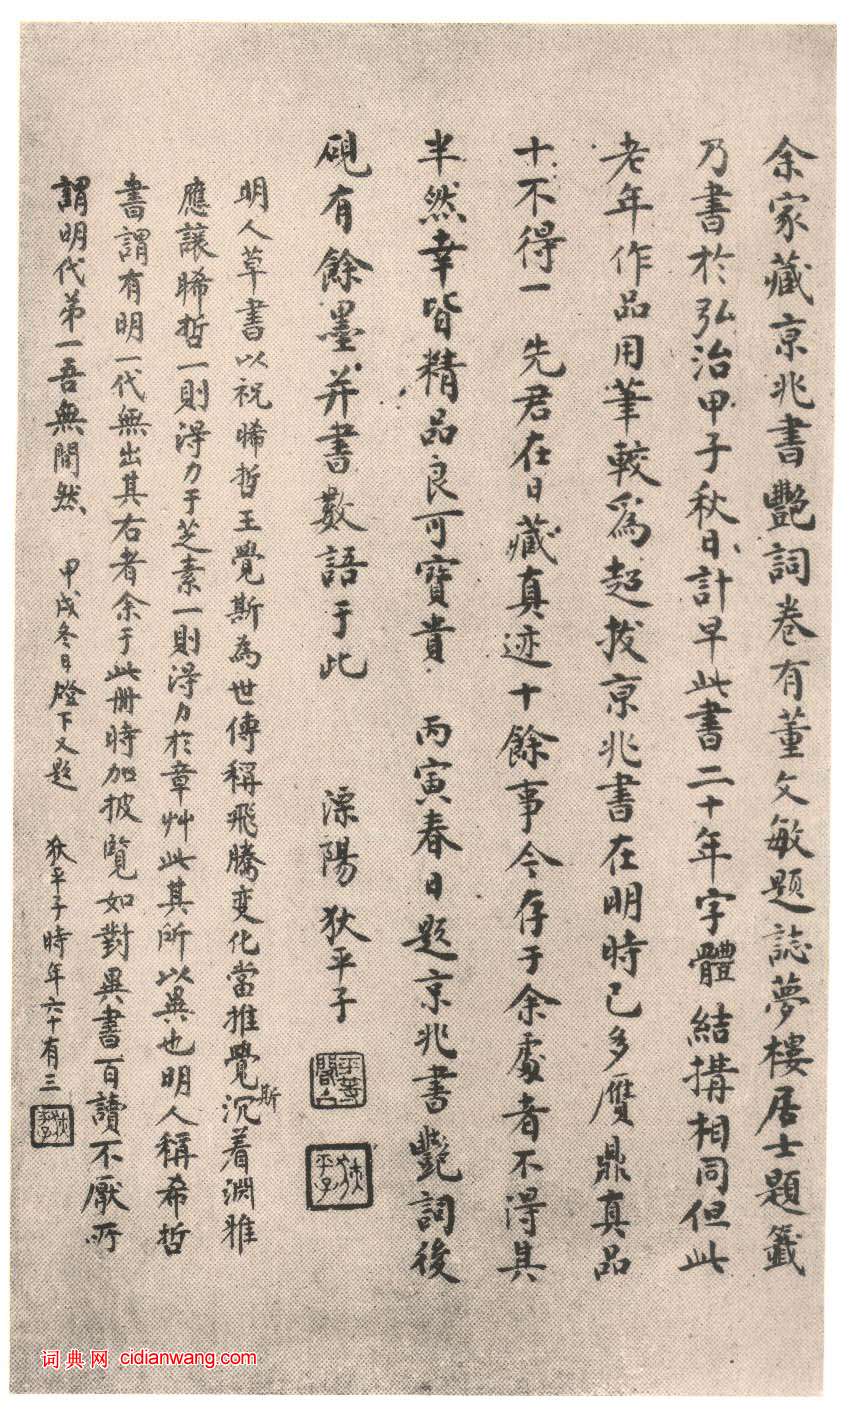 余家藏京兆書艷詞卷有董文敏題誌夢樓居士題籤
乃書於弘治甲子秋日計早此書二十年字體結搆相同但此
老年作品用筆較爲超拔京兆書在明時已多贋鼎真品
十不得一 先君在日藏真迹十餘事今存于余處者不得其
半然幸皆精品良可寶貴 丙寅春日題京兆書艷詞後
硯有餘墨并書數語于此 溧陽狄平子
平等閣
狄平子
明人草書以祝晞哲王覺斯為世傳稱飛騰变化當推覺斯沉着淵雅
應讓晞哲一則淂力于芝素一則淂力於章艸此其所以異也明人稱希哲
書謂有明一代無出其右者余于此册時加披覽如對異書百讀不厭所
謂明代弟一吾無間然 甲戌冬日燈下又題 狄平子時年六十有三
狄平子
词典网 cidianwang.com